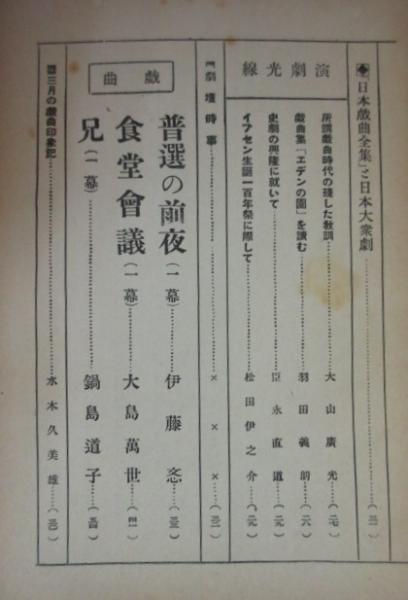 「日本戯曲全集」と日本大衆劇
演劇光線
所謂戯曲時代の残した教訓……大山廣光……(二七)
戯曲集「エデンの園」を読む……羽田義朗……(二八)
史劇の興隆に就いて……永直道……(二九)
イプセン生誕一百年祭に際して……松田伊之介……(二九)
劇壇時事……×××……
戯曲
普選の前夜(一幕)……伊藤
食堂會議(一幕)……大島萬世
兄(一幕)……鍋島道子
三月の戯曲印象記……水木久美雄